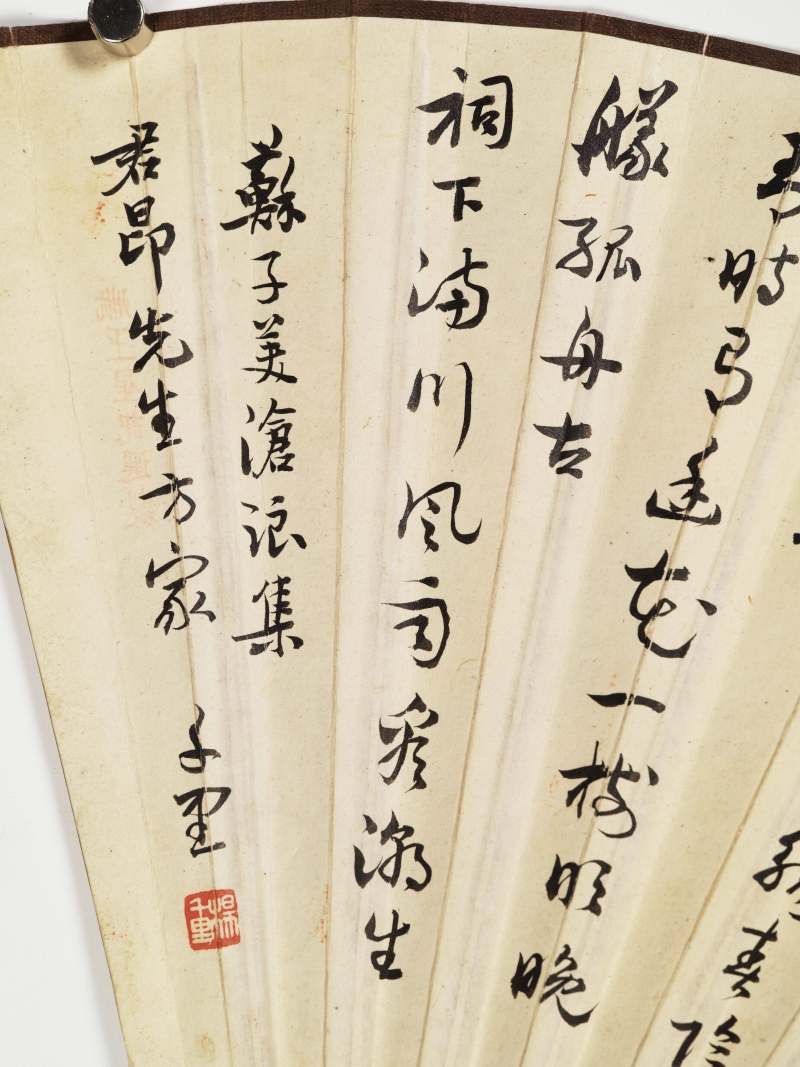 春陰
時有幽花一樹明晚
艤孤舟古
祠下滿川風雨看潮生
蘇子美滄浪集
君昂先生方家
千里
楊千里